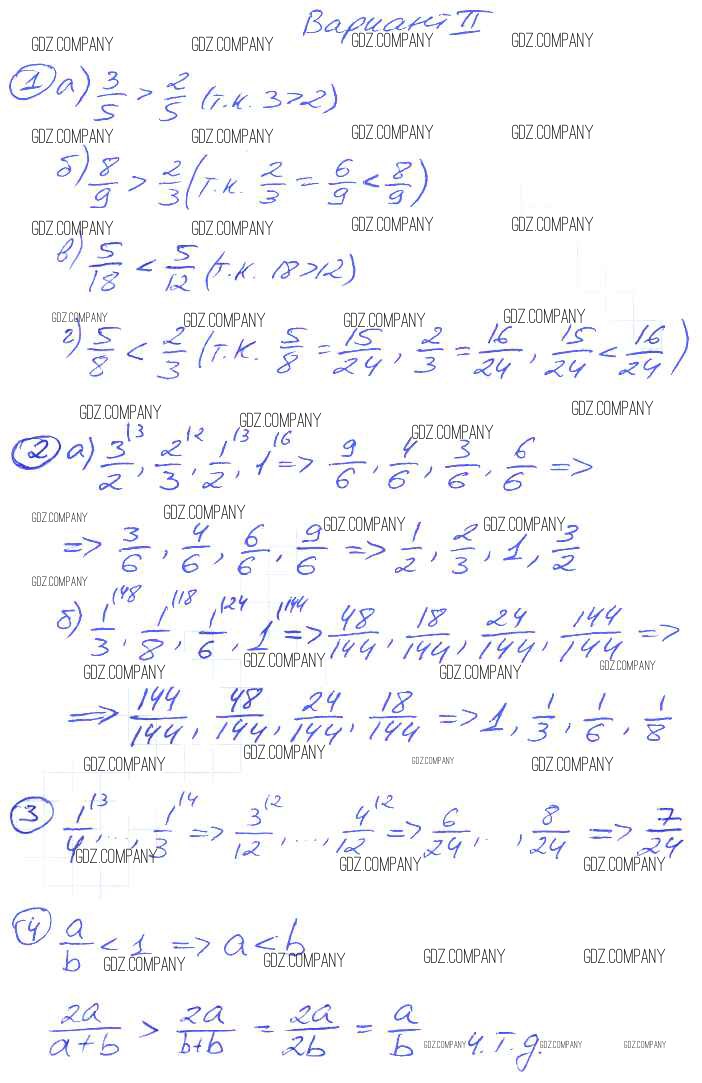 Вариант II
GDZ.COMPANY GDZ.COMPANY GDZ.COMPANY GDZ.COMPANY
① а) 3/5 > 2/5 (т.к. 3>2)
GDZ.COMPANY GDZ.COMPANY GDZ.COMPANY GDZ.COMPANY
б) 8/9 > 2/3 (т.к. 2/3 = 6/9 < 8/9)
GDZ.COMPANY GDZ.COMPANY GDZ.COMPANY GDZ.COMPANY
в) 5/18 < 5/12 (т.к. 18>12)
GDZ.COMPANY GDZ.COMPANY GDZ.COMPANY GDZ.COMPANY
г) 5/8 < 2/3 (т.к. 5/8 = 15/24, 2/3 = 16/24, 15/24 < 16/24)
GDZ.COMPANY GDZ.COMPANY GDZ.COMPANY GDZ.COMPANY
② а) 3/2 \3, 2/3 \2, 1/2 \3, 1 \6 => 9/6, 4/6, 3/6, 6/6 =>
GDZ.COMPANY GDZ.COMPANY GDZ.COMPANY GDZ.COMPANY
=> 3/6, 4/6, 6/6, 9/6 => 1/2, 2/3, 1, 3/2
GDZ.COMPANY
б) 1/3 \48, 1/8 \18, 1/6 \24, 1 \144 => 48/144, 18/144, 24/144, 144/144 =>
GDZ.COMPANY GDZ.COMPANY GDZ.COMPANY GDZ.COMPANY
=> 144/144, 48/144, 24/144, 18/144 => 1, 1/3, 1/6, 1/8
GDZ.COMPANY GDZ.COMPANY GDZ.COMPANY GDZ.COMPANY
③ 1/4 \3, ..., 1/3 \4 => 3/12 \2, ..., 4/12 \2 => 6/24, ..., 8/24 => 7/24
GDZ.COMPANY GDZ.COMPANY GDZ.COMPANY
④ a/b < 1 => a < b
GDZ.COMPANY GDZ.COMPANY GDZ.COMPANY GDZ.COMPANY
2a/(a+b) > 2a/(b+b) = 2a/2b = a/b ч.т.д.
GDZ.COMPANY GDZ.COMPANY GDZ.COMPANY